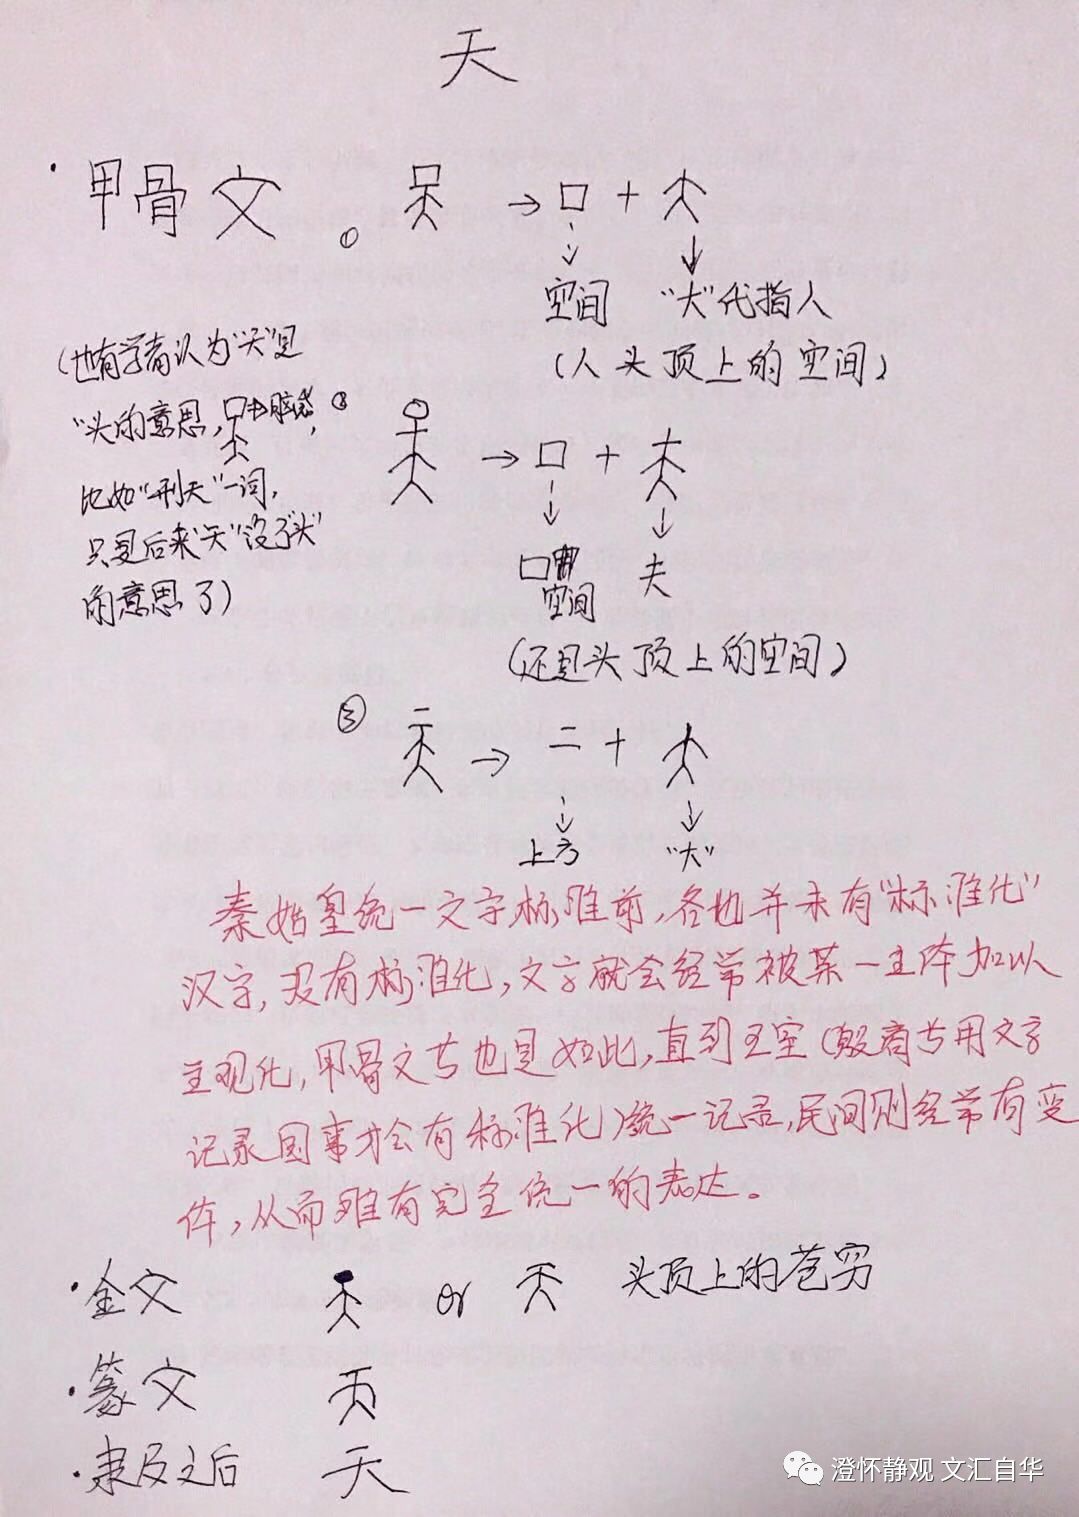 天
·甲骨文 ① → 口 + 大
空间 "大"代指人
(人头顶上的空间)
(也有学者认为"天"是
"头的意思,
比如"刑天"一词,
只是后来"天"没了"头"
的意思了)
② → 口 + 夫
空间 夫
(还是头顶上的空间)
③ → 二 + 大
上方 "大"
秦始皇统一文字标准前,各地并未有"标准化"
汉字,没有标准化,文字就会经常被某一主体加以
主观化,甲骨文也是如此,直到王室(殷商专用文字
记录国事才会有标准化)统一记录,民间则经常有变
体,从而难有完全统一的表达。
·金文 or 头顶上的苍穷
·篆文
·隶及之后 天
澄怀静观 文汇自华